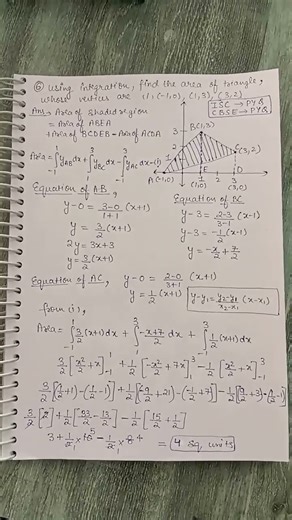 ⑥ Using integration, find the area of triangle,
whose vertices are (-1,0), (1,3), (3,2)
ISC → PYQ
CBSE → PYQ
Ans → Area of Shaded region
= Area of ABEA
+ Area of BCDEB - Area of ACDA
Area = ∫₋₁¹ y_AB dx + ∫₁³ y_BC dx - ∫₋₁³ y_AC dx —(1)
3
2
1
B(1,3)
C(3,2)
A(-1,0)
E
(1,0)
D
(3,0)
Equation of AB,
y-0 = 3-0/1+1 (x+1)
y = 3/2 (x+1)
2y = 3x+3
y = 3/2 (x+1)
Equation of BC
y-3 = 2-3/3-1 (x-1)
y-3 = -1/2 (x-1)
y = -x/2 + 7/2
Equation of AC, y-0 = 2-0/3+1 (x+1)
y = 1/2 (x+1)
y-y₁ = y₂-y₁/x₂-x₁ (x-x₁)
from (1),
Area = ∫₋₁¹ 3/2 (x+1) dx + ∫₁³ -x+7/2 dx + ∫₋₁³ 1/2 (x+1) dx
3/2 [x²/2 + x]₋₁¹ + 1/2 [-x²/2 + 7x]₁³ - 1/2 [x²/2 + x]₋₁³
3/2 [(1/2+1) - (1/2-1)] + 1/2 [(-9/2+21) - (-1/2+7)] - 1/2 [(9/2+3) - (1/2-1)]
3/2 [2] + 1/2 [33/2 - 13/2] - 1/2 [15/2 + 1/2]
= 4 sq. units